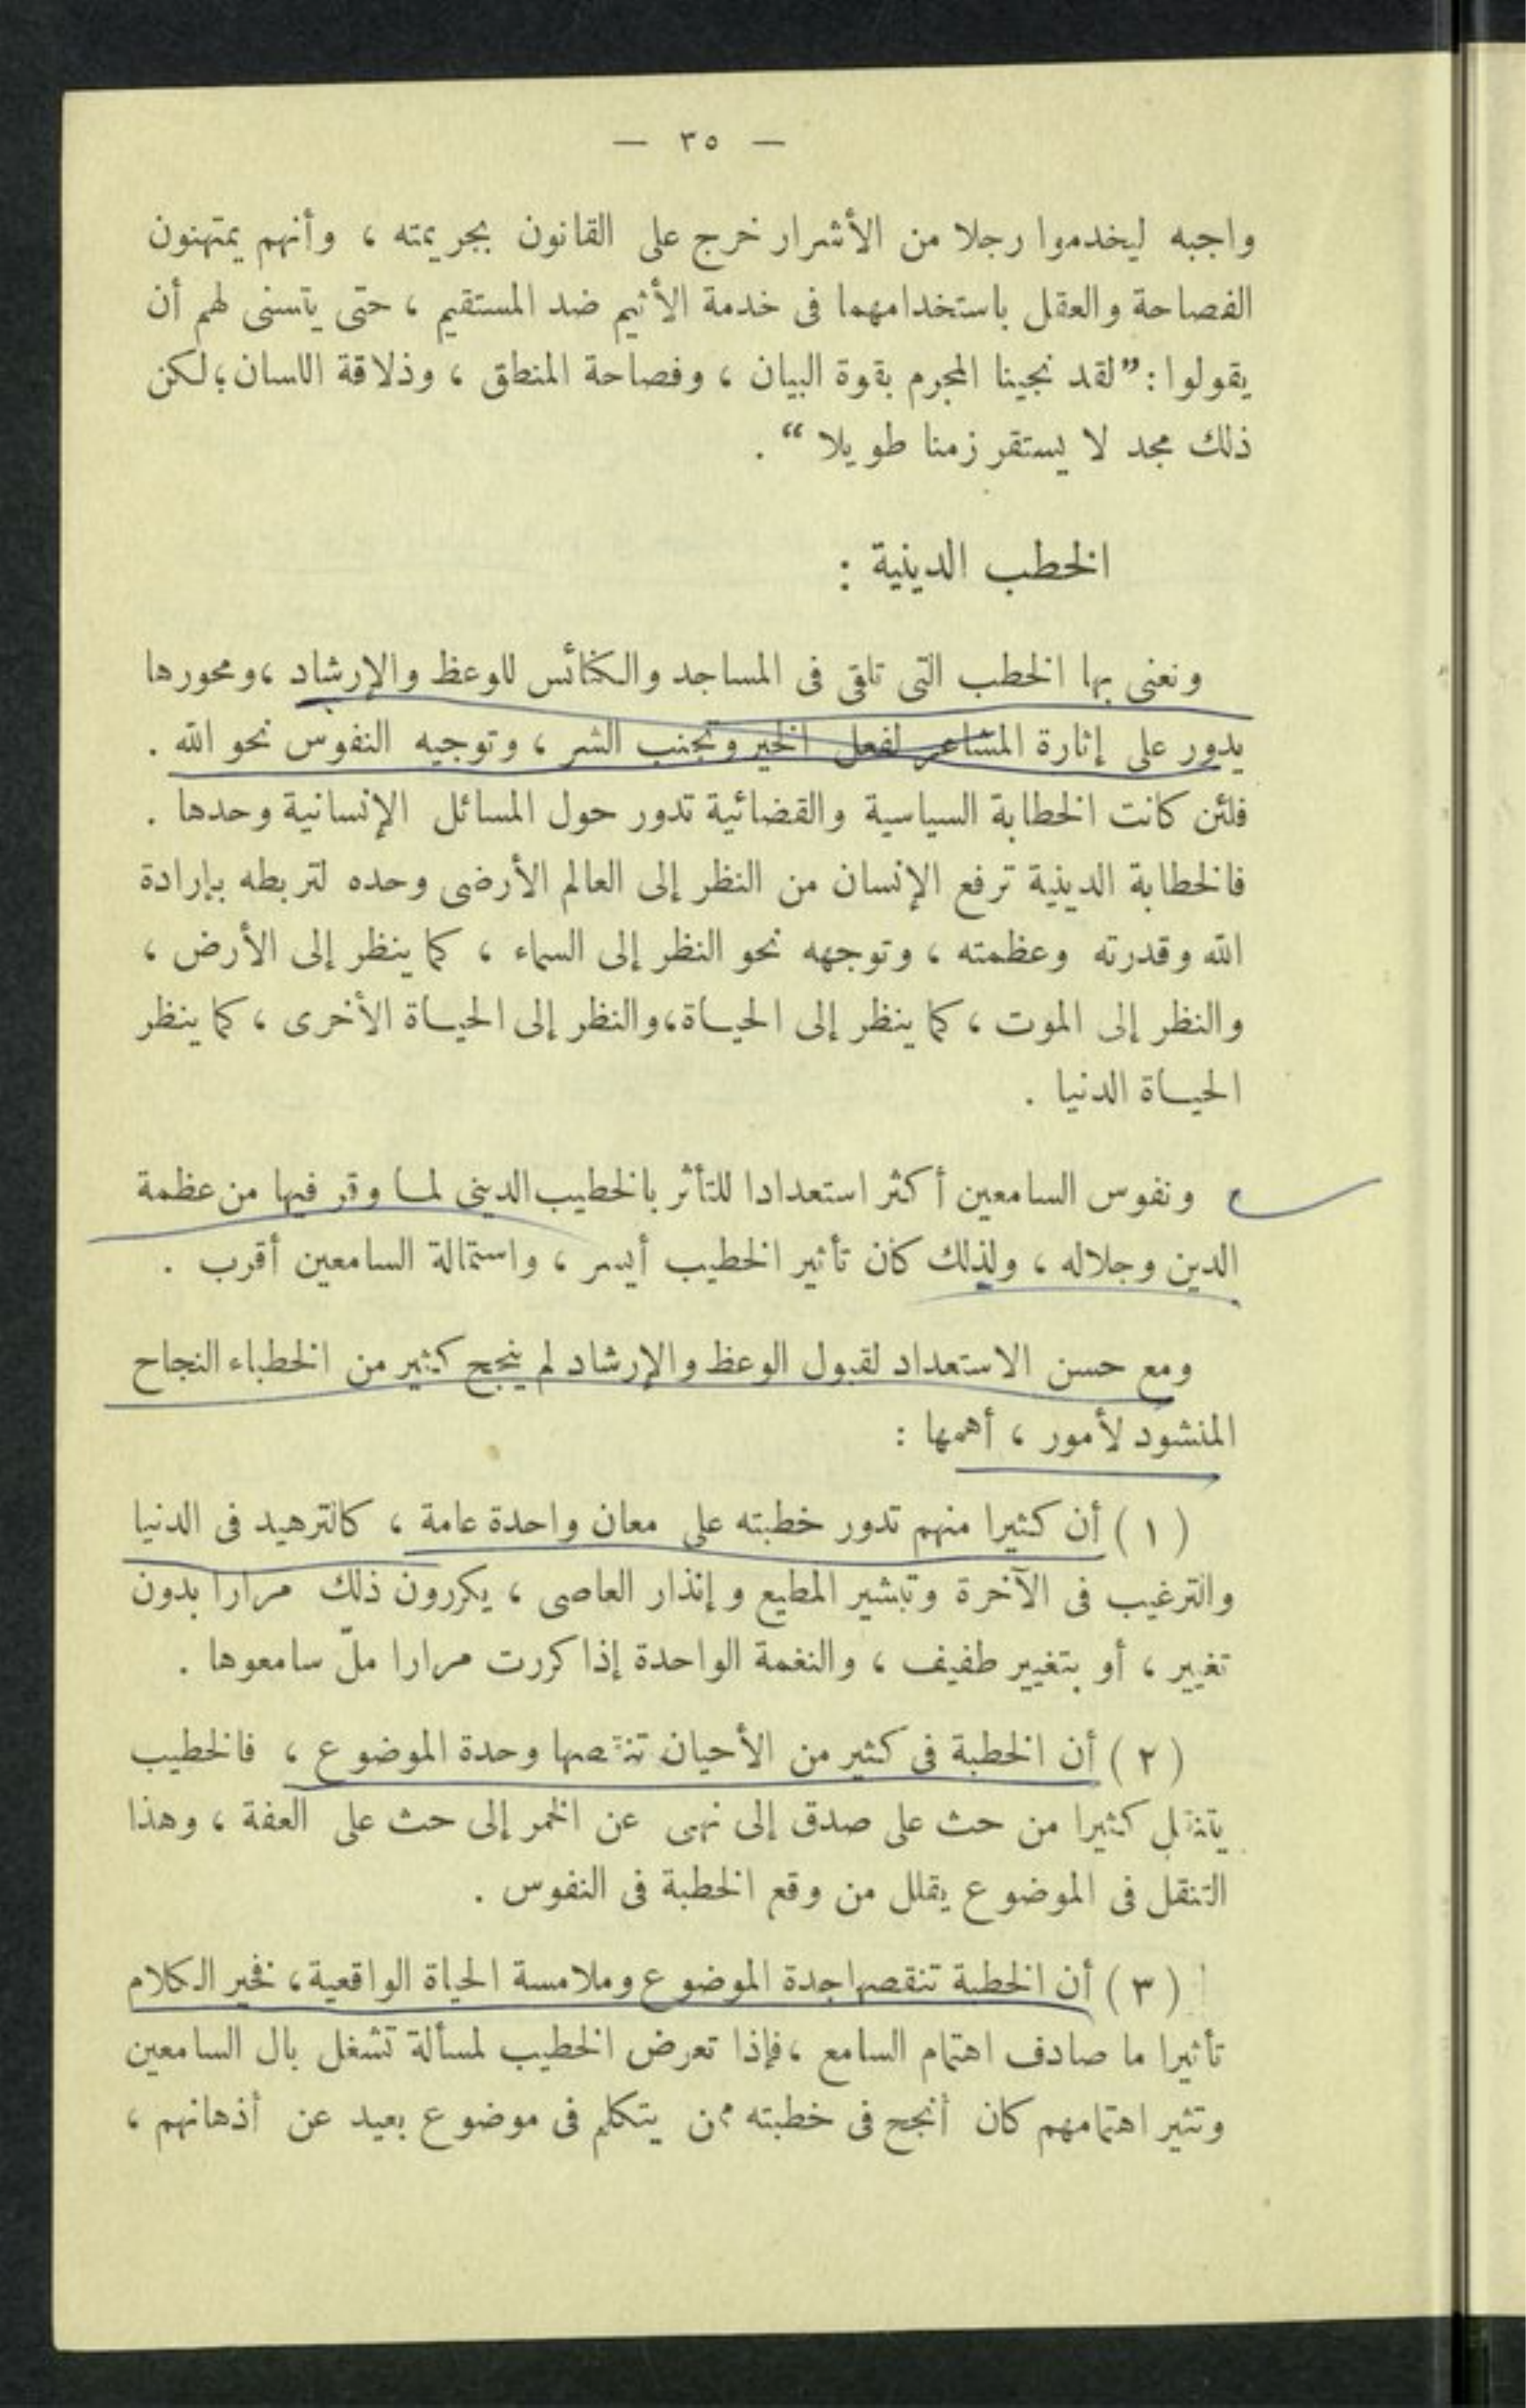 — ٣٥ —
واجبه ليخدموا رجلا من الأشرار خرج على القانون بجريمته ، وأنهم يمتهنون
الفصاحة والعقل باستخدامهما فى خدمة الأثيم ضد المستقيم ، حتى يتسنى لهم أن
يقولوا : ”لقد نجينا المجرم بقوة البيان ، وفصاحة المنطق ، وذلاقة اللسان ؛ لكن
ذلك مجد لا يستقر زمنا طويلا “ .
الخطب الدينية :
ونعنى بها الخطب التى تلقى فى المساجد والكنائس للوعظ والإرشاد ، ومحورها
يدور على إثارة المشاعر لفعل الخير وتجنب الشر ، وتوجيه النفوس نحو الله .
فلئن كانت الخطابة السياسية والقضائية تدور حول المسائل الإنسانية وحدها .
فالخطابة الدينية ترفع الإنسان من النظر إلى العالم الأرضى وحده لتربطه بإرادة
الله وقدرته وعظمته ، وتوجهه نحو النظر إلى السماء ، كما ينظر إلى الأرض ،
والنظر إلى الموت ، كما ينظر إلى الحياة ، والنظر إلى الحياة الأخرى ، كما ينظر
الحياة الدنيا .
ونفوس السامعين أكثر استعدادا للتأثر بالخطيب الدينى لما وقر فيها من عظمة
الدين وجلاله ، ولذلك كان تأثير الخطيب أيسر ، واستمالة السامعين أقرب .
ومع حسن الاستعداد لقبول الوعظ والإرشاد لم ينجح كثير من الخطباء النجاح
المنشود لأمور ، أهمها :
( ١ ) أن كثيرا منهم تدور خطبته على معان واحدة عامة ، كالترهيد فى الدنيا
والترغيب فى الآخرة وتبشير المطيع وإنذار العاصى ، يكررون ذلك مرارا بدون
تغيير ، أو بتغيير طفيف ، والنغمة الواحدة إذا كررت مرارا ملّ سامعوها .
( ٢ ) أن الخطبة فى كثير من الأحيان تنقصها وحدة الموضوع ، فالخطيب
يتنقل كثيرا من حث على صدق إلى نهى عن الخمر إلى حث على العفة ، وهذا
التنقل فى الموضوع يقلل من وقع الخطبة فى النفوس .
( ٣ ) أن الخطبة تنقصها جدة الموضوع وملامسة الحياة الواقعية ، فخير الكلام
تأثيرا ما صادف اهتمام السامع ، فإذا تعرض الخطيب لمسألة تشغل بال السامعين
وتثير اهتمامهم كان أنجح فى خطبته ممن يتكلم فى موضوع بعيد عن أذهانهم ،